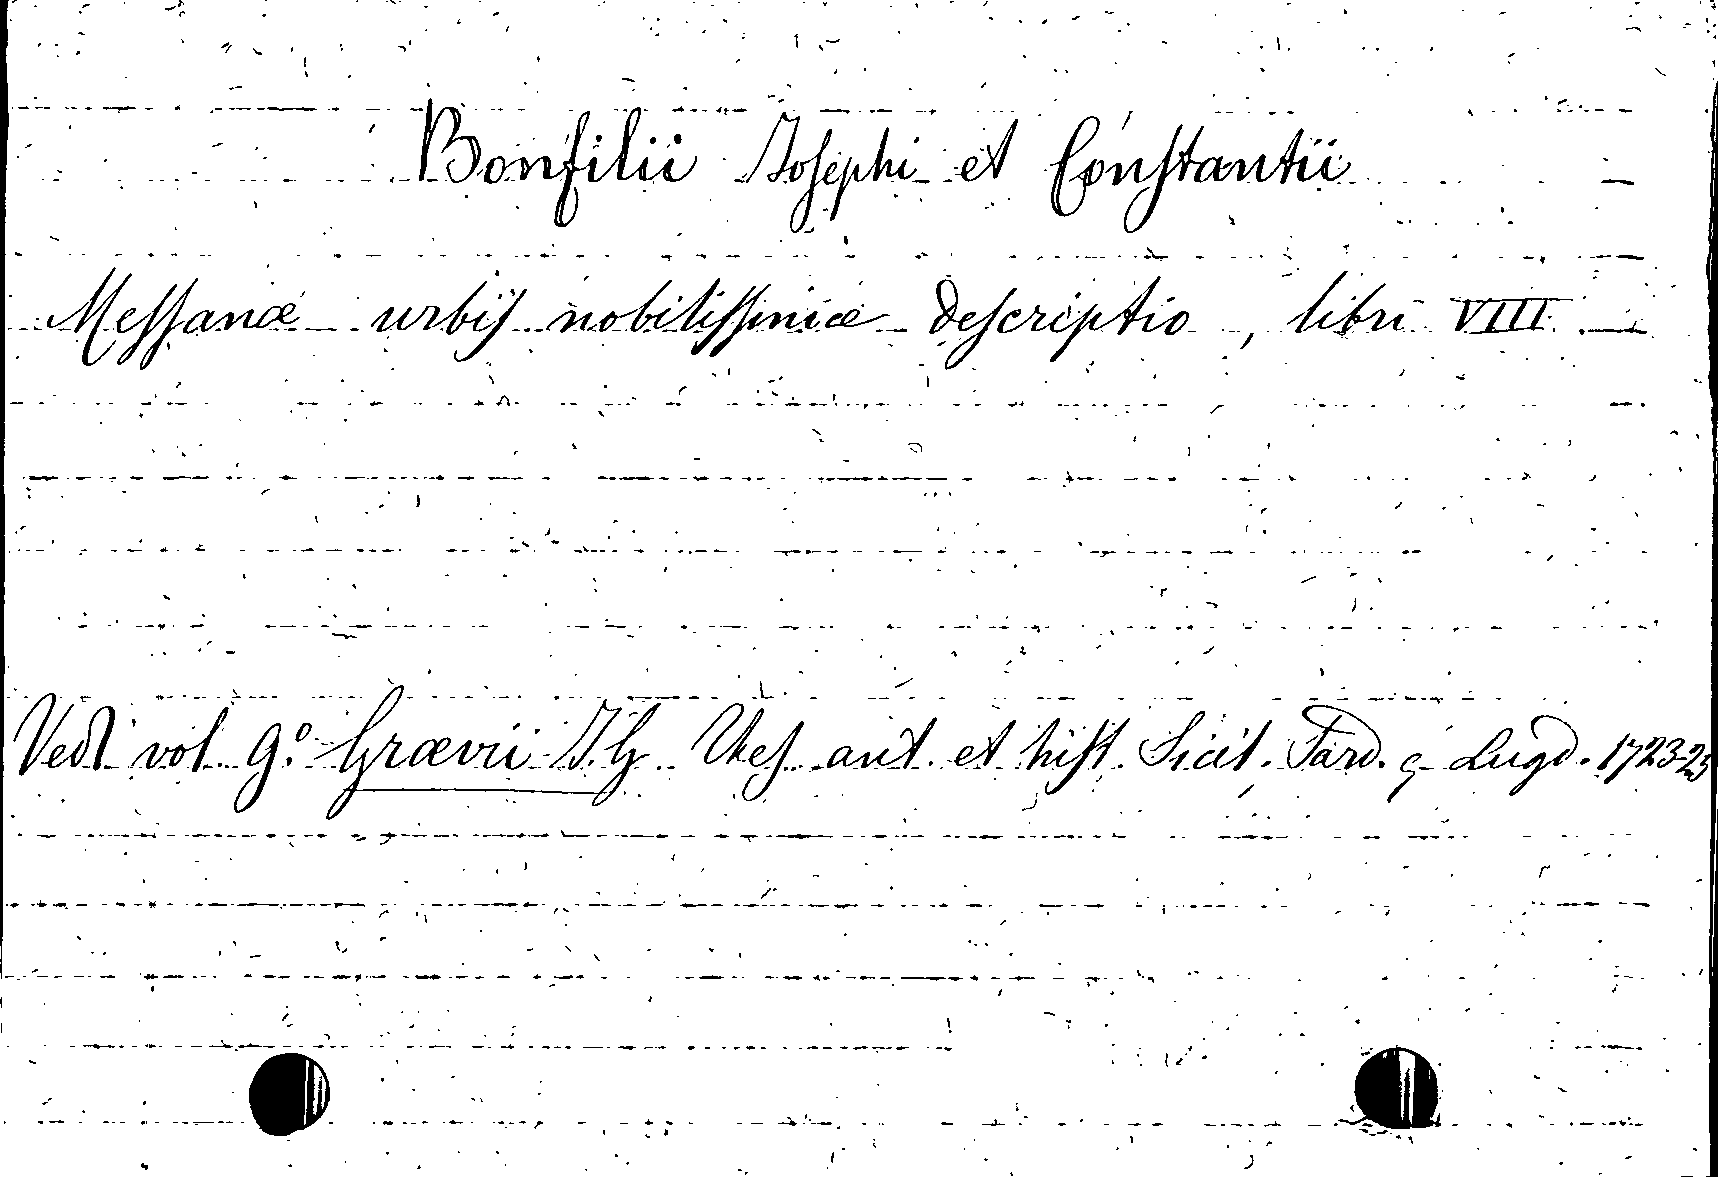 Bonfilii Josephi et Constantii
Messanæ urbis nobilissimæ descriptio, libri VIII
Vedi vol. 9.º Grævii J. G. Thes. ant. et hist. Sicil. Sard. Lugd. 1723-25